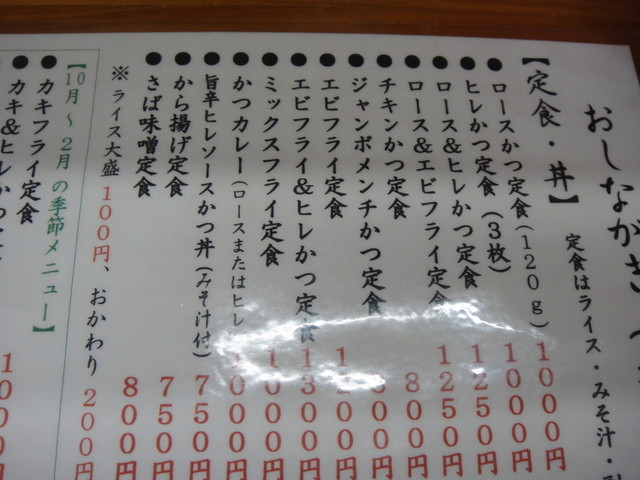 おしながき
定食はライス・みそ汁・
【定食・丼】
●ロースかつ定食(120g)1000円
●ヒレかつ定食(3枚)1000円
●ロース&ヒレかつ定食1250円
●ロース&エビフライ定食1250円
●チキンかつ定食800円
●ジャンボメンチかつ定食
●エビフライ定食
●エビフライ&ヒレかつ定食1300円
●ミックスフライ定食1000円
●かつカレー(ロースまたはヒレ 1000円
●旨辛ヒレソースかつ丼(みそ汁付)750円
●から揚げ定食750円
●さば味噌定食800円
※ライス大盛100円、おかわり200円
【10月~2月の季節メニュー】
●カキフライ定食1000円
●カキ&ヒレかつ